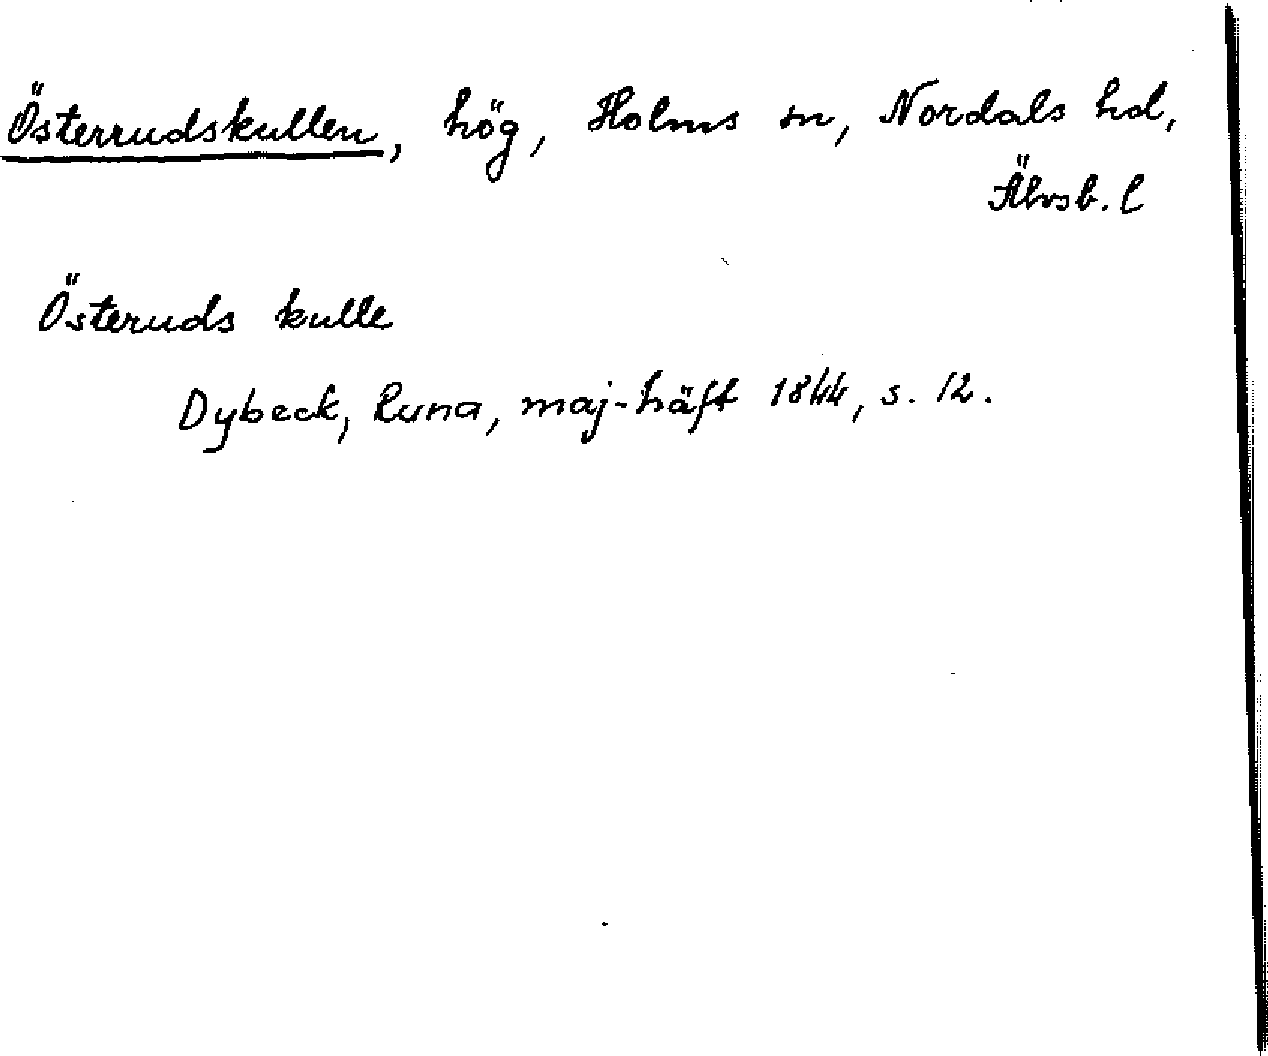 Österrudskullen, hög, Holms sn, Nordals hd,
Älvsb. l
Österuds kulle
Dybeck, Runa, maj-häft 1844, s. 12.